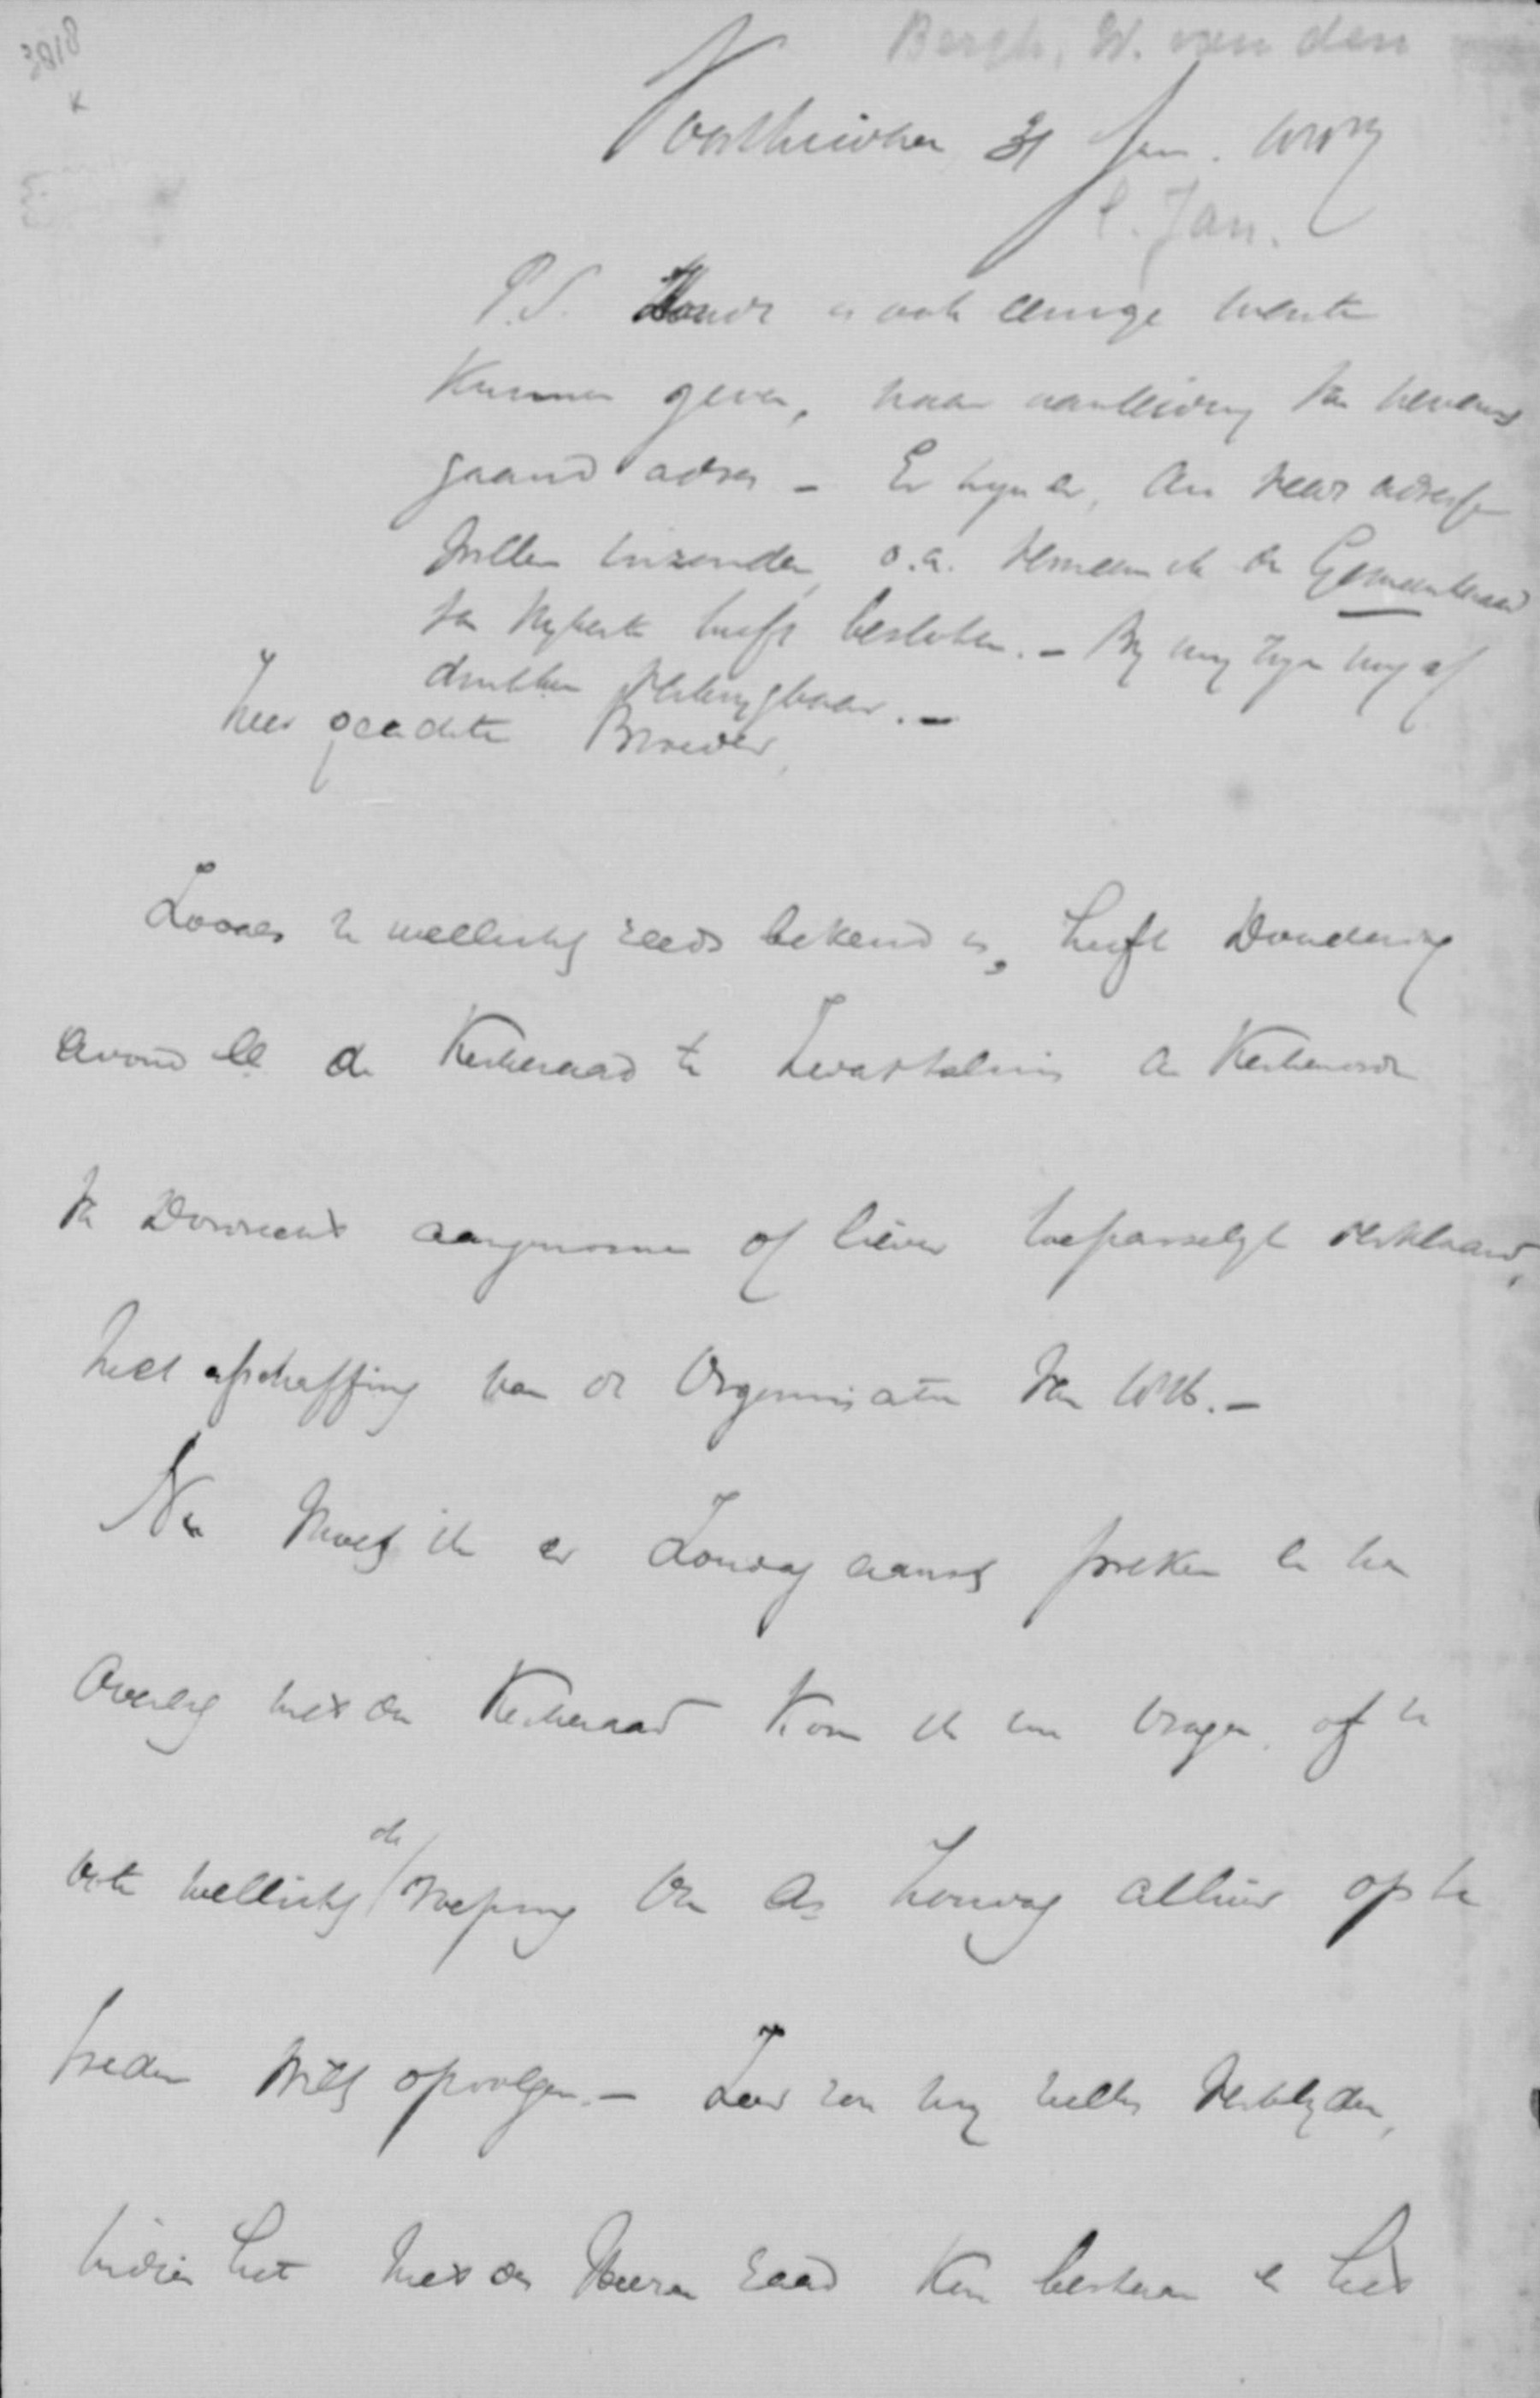 3818
Bergh, W. van den
Voorthuizen 31 Jan.
Jan.
P.S. Zoudt u ook eenige wenk
kunnen geven, naar aanleiding van nevens
gaand adres - Er zijn er, die zulk adres
willen inzenden, o.a. verneem ik de Gemeenteraad
van Nijkerk heeft besloten. - Bij mij zijn nog af
drukken verkrijgbaar. -
Zeer geachte Broeder,
Zooals u wellicht reeds bekend is, heeft Donderdag
avond ll de Kerkeraad te de Kerkenorde
van Dordrecht aangenomen of liever toepasselijk verklaard,
met afschaffing van de Organisatie van 1816. -
Nu moet ik er Zondag aanst preken en na
overleg met den Kerkeraad kom ik u vragen, of u
ook wellicht de roeping om as Zondag alhier op te
treden wilt opvolgen. - Zeer zou mij zulks verblijden,
indien het met des Heeren raad kan bestaan en het